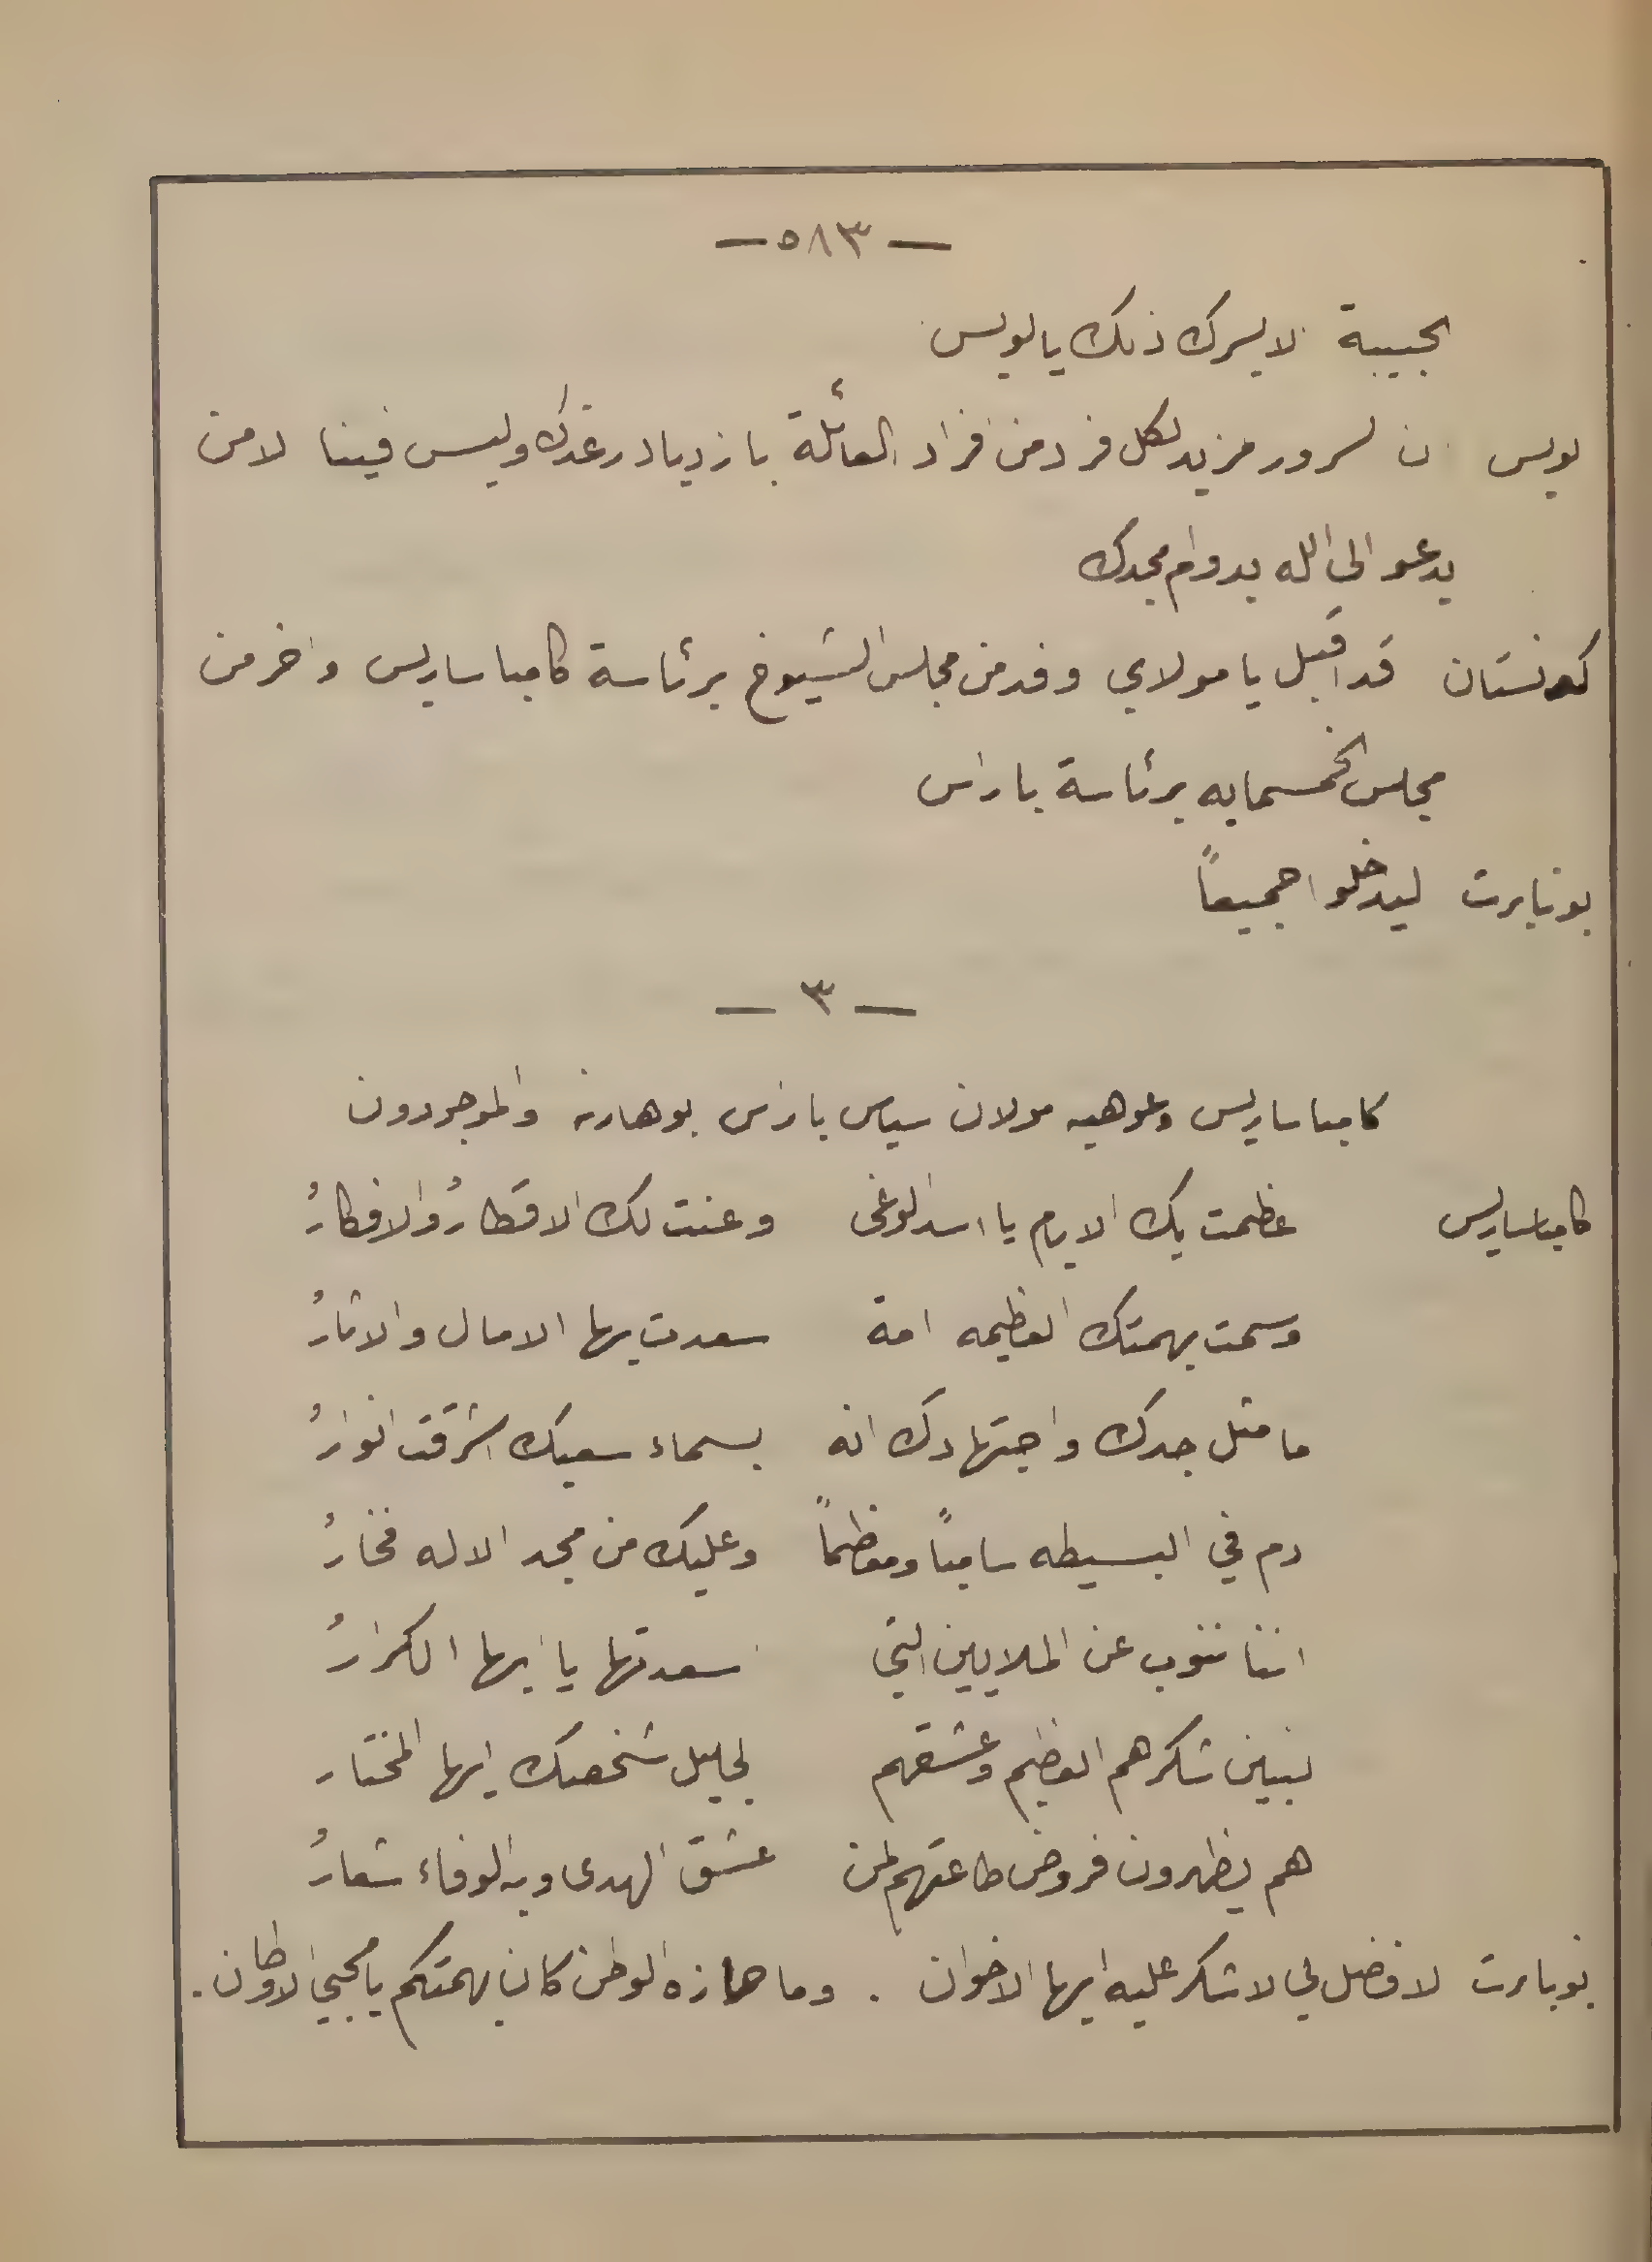 — ٥٨٣ —
الحبيبة لا يسرك ذلك يا لويس
لويس ن لسرور مزيد لكل فرد من افراد العائلة بازدياد رغدك وليس فينا لا من
يدعو الى الله بدوام مجدك
كونستان قد اقبل يا مولاي وفد من مجلس الشيوخ برئاسة كامباساريس واخر من
مجلس الخمسمايه برئاسة باراس
بونابرت ليدخلوا جميعاً
— ٣ —
كامباساريس وغوهيه مولان سياس باراس بوهارنه والموجودون
كامباساريس عظمت بك الايام يا اسد الوغى وعنت لك الاقطارُ والافكارُ
وسمت بهمتك العظيمه امة سعدت بها الامال والاثارُ
ما مثل جدك واجتهادك انه بسماء سعيك اشرقت انوارُ
دم في البسيطه سامياً ومعظماً وعليك من مجد الاله فخارُ
اننا ننوب عن الملايين التي اسعدتها يا ايها الكرارُ
لنبين شكرهم العظيم وعشقهم لجليل شخصك ايها المختار
هم يظهرون فروض طاعتهم لمن عشق الهدى وبه الوفاء شعارُ
بونابرت لا فضل لي لا شكر عليه ايها الاخوان . وما حازه الوطن كان بهمتكم يا محبي الاوطان .